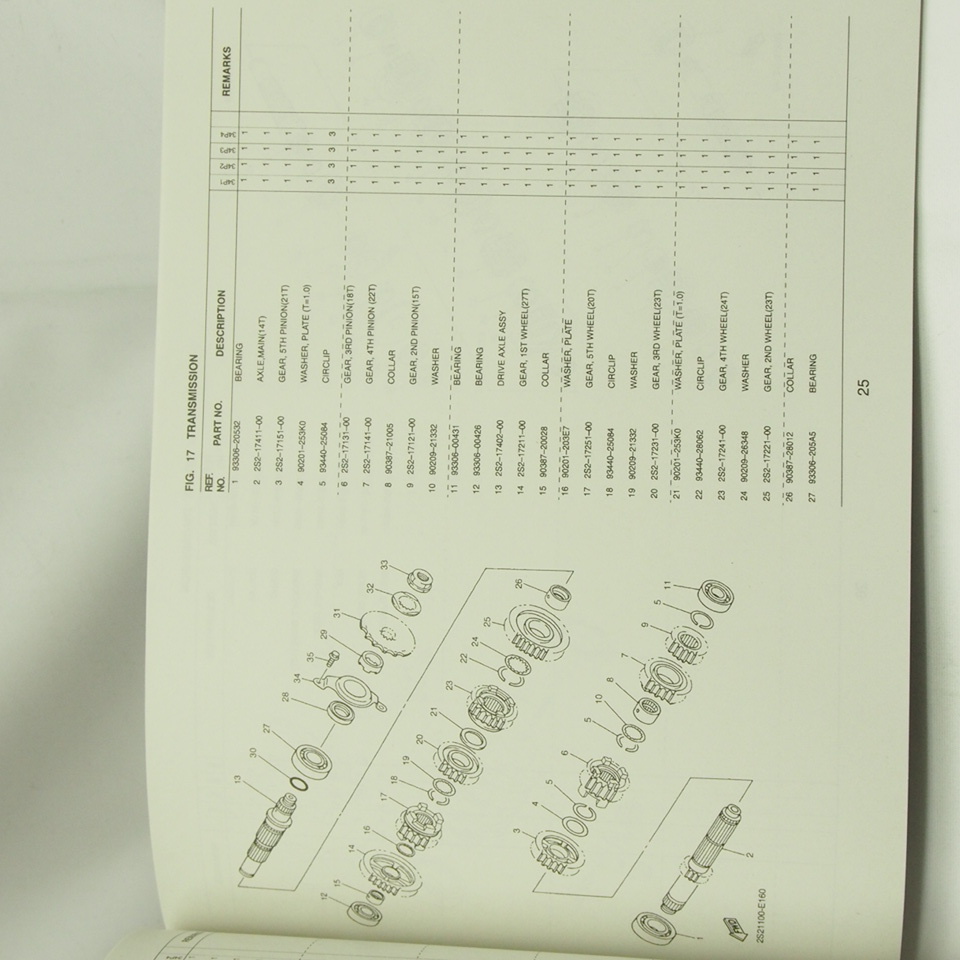 FIG. 17 TRANSMISSION
REF. NO. PART NO. DESCRIPTION 34P1 34P2 34P3 34P4 REMARKS
1 93306-20532 BEARING 1 1 1 1
2 2S2-17411-00 AXLE,MAIN(14T) 1 1 1 1
3 2S2-17151-00 GEAR, 5TH PINION(21T) 1 1 1 1
4 90201-253K0 WASHER, PLATE (T=1.0) 1 1 1 1
5 93440-25084 CIRCLIP 3 3 3 3
6 2S2-17131-00 GEAR, 3RD PINION(18T) 1 1 1 1
7 2S2-17141-00 GEAR, 4TH PINION (22T) 1 1 1 1
8 90387-21005 COLLAR 1 1 1 1
9 2S2-17121-00 GEAR, 2ND PINION(15T) 1 1 1 1
10 90209-21332 WASHER 1 1 1 1
11 93306-00431 BEARING 1 1 1 1
12 93306-00426 BEARING 1 1 1 1
13 2S2-17402-00 DRIVE AXLE ASSY 1 1 1 1
14 2S2-17211-00 GEAR, 1ST WHEEL(27T) 1 1 1 1
15 90387-20028 COLLAR 1 1 1 1
16 90201-203E7 WASHER, PLATE 1 1 1 1
17 2S2-17251-00 GEAR, 5TH WHEEL(20T) 1 1 1 1
18 93440-25084 CIRCLIP 1 1 1 1
19 90209-21332 WASHER 1 1 1 1
20 2S2-17231-00 GEAR, 3RD WHEEL(23T) 1 1 1 1
21 90201-253K0 WASHER, PLATE (T=1.0) 1 1 1 1
22 93440-28062 CIRCLIP 1 1 1 1
23 2S2-17241-00 GEAR, 4TH WHEEL(24T) 1 1 1 1
24 90209-26348 WASHER 1 1 1 1
25 2S2-17221-00 GEAR, 2ND WHEEL(23T) 1 1 1 1
26 90387-28012 COLLAR 1 1 1 1
27 93306-205A5 BEARING 1 1 1 1
25
13 30 27 28 34 35 29 31 32 33
12 15 14 16 17 18 19 20 21 23 22 24 25 26
3 4 5 6 5 10 8 7 9 5 11
1 2
FWD
2S21100-E160